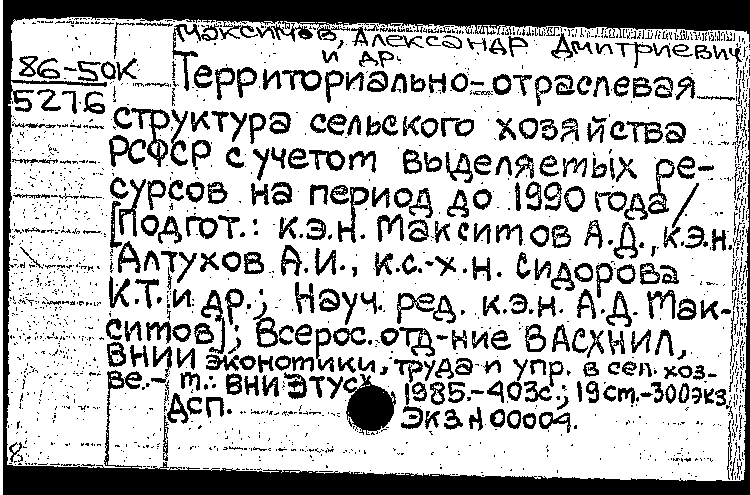 Максимов, Александр Дмитриевич
и др.
86-50К
5276
Территориально-отраслевая
структура сельского хозяйства
РСФСР с учетом выделяемых ре-
сурсов на период до 1990 года /
[Подгот.: к.э.н. Максимов А.Д., к.э.н.
Алтухов А.И., к.с.-х.н. Сидорова
К.Т. и др.; Науч. ред. к.э.н. А.Д. Мак-
симов]; Всерос. отд-ние ВАСХНИЛ,
ВНИИ экономики, труда и упр. в сел. хоз-
ве.- м.: ВНИЭТУСХ, 1985.-403с.; 19см.-300экз.
ДСП. Экз. N 00004.
8